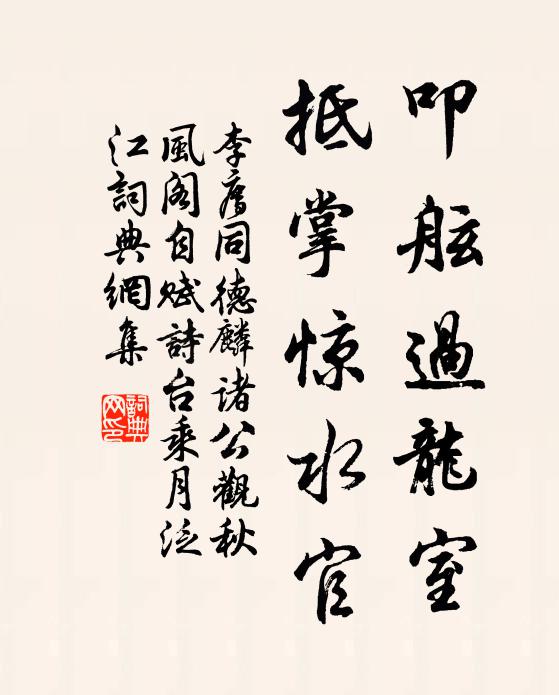 叩舷過龍室
抵掌惊水官
李廌同德麟諸公觀秋
風閣自赋詩台乘月泛
江詞典網集
詞典網印